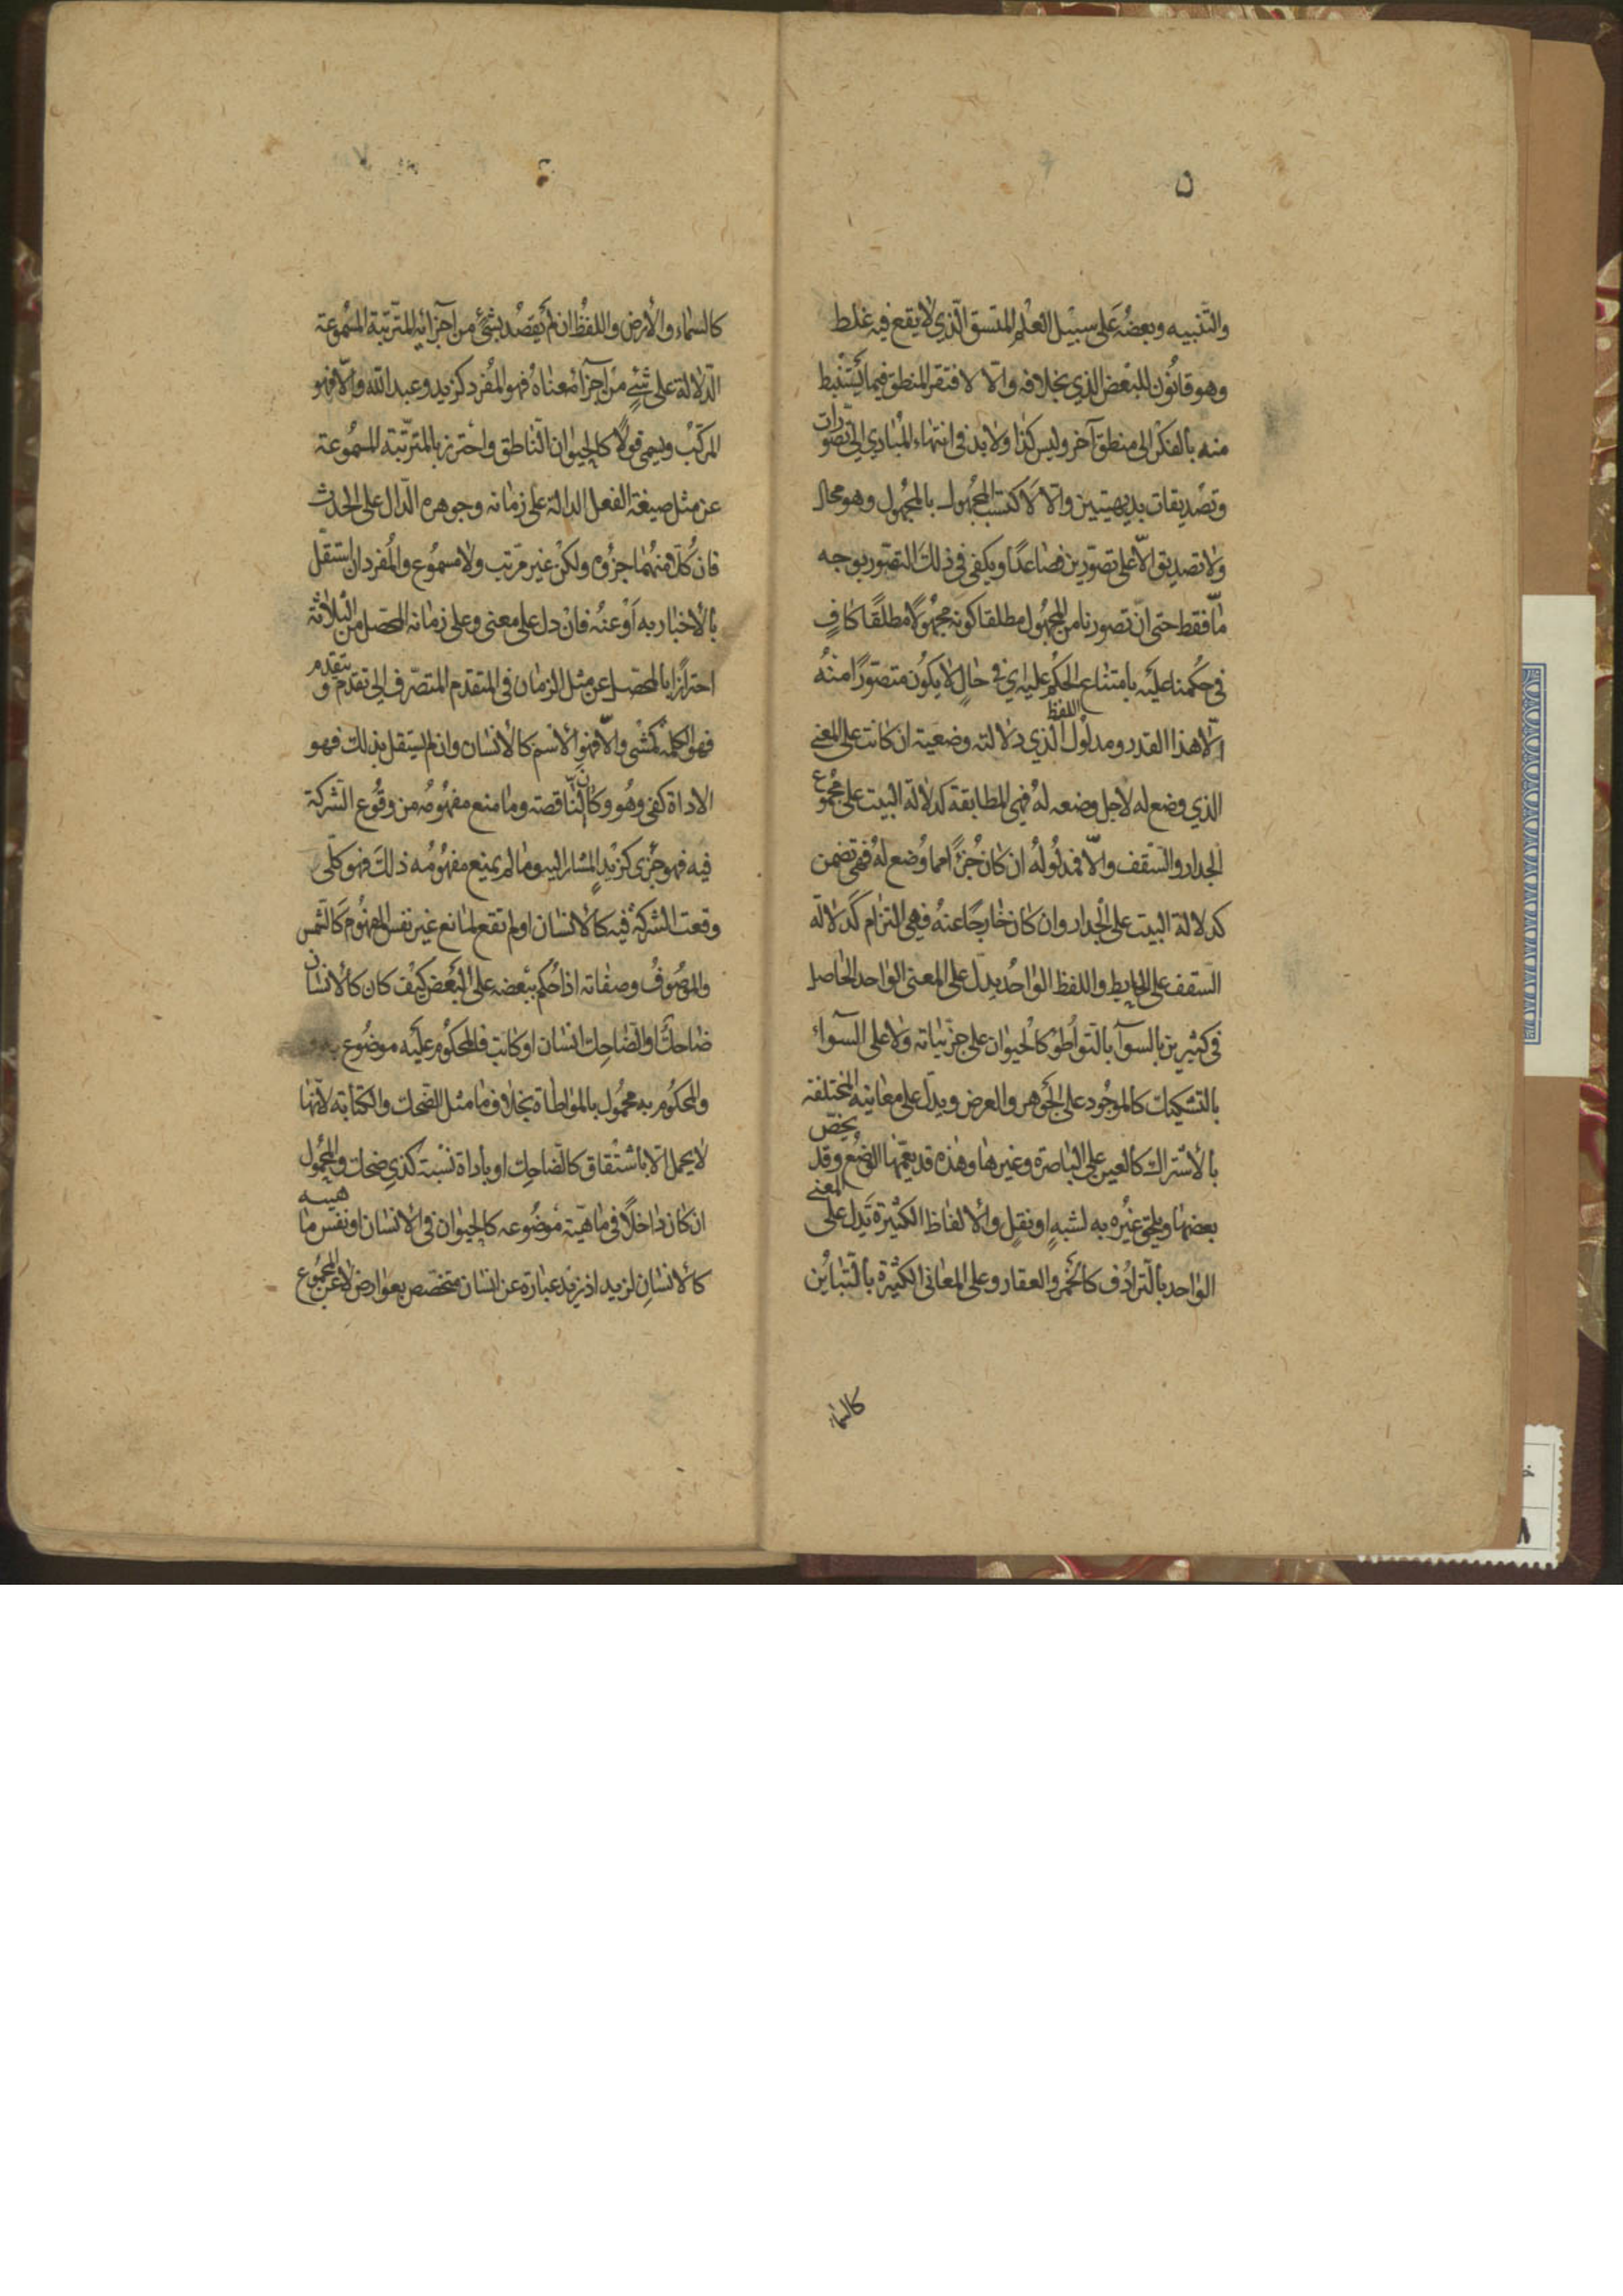 ٥
والتنبيه وبعضُه على سبيل العلم المتسق الذي لا يقع فيه غلط
وهو قانون للبعض الذي بخلافه والّا لافتقر المنطق فيما يُستنبط
منه بالفكر الى منطق آخر وليس كذا ولا بد في انتهاء المبادي الى تصورات
وتصديقات بديهيتين والا لاكتسب المجهول بالمجهول وهو محال
ولا تصديق الّا على تصوّرين فصاعدًا ويكفي في ذلك التصور بوجه
مّا فقط حتى انّ تصورنا من المجهول مطلقا كونه مجهولًا مطلقًا كافٍ
في حكمنا عليه بامتناع الحكم عليه اي في حال لا يكون متصورًا منه
الّا هذا القدر ومدلول اللفظ الذي دلالته وضعية ان كانت على المعنى
الذي وضع له لاجل وضعه له فهي المطابقة كدلالة البيت على مجموع
الجدار والسقف والّا فمدلوله ان كان جُزءًا مما وُضع له فهي تضمن
كدلالة البيت على الجدار وان كان خارجًا عنه فهي التزام كدلالة
السقف على الحايط واللفظ الواحد يدل على المعنى الواحد الحاصل
في كثيرين بالسوآ بالتواطُؤ كالحيوان على جزئياته ولا على السوآء
بالتشكيك كالموجود على الجوهر والعرض ويدل على معانيه المختلفة
بالاشتراك كالعين على الباصرة وغيرها وهذه قد يعمّها الوضع وقد يخصّ
بعضها ويلحق غيره به لشبهٍ او نقلٍ والالفاظ الكثيرة تدل على المعنى
الواحد بالترادُف كالخمر والعقار وعلى المعاني الكثيرة بالتباين
كالسماء
٦
كالسماء والارض واللفظ ان لم يقصد بشئ من اجزائه المترتبة المسموعة
الدلالة على شئ من اجزآ معناه فهو المفرد كزيد وعبد الله والّا فهو
المركب ويسمى قولًا كالحيوان الناطق واحترز بالمترتبة المسموعة
عن مثل صيغة الفعل الدالة على زمانه وجوهره الدال على الحدث
فان كلّا منهما جزؤه ولكن غير مرتب ولا مسموع والمفرد ان استقلّ
بالاخبار به او عنه فان دل على معنى وعلى زمانه المحصل من الثلاثة
احترازًا بالمحصل عن مثل الزمان في المتقدم المتصرف الى تقدم و يتقدم
فهو الكلمة كمشى والّا فهو الاسم كالانسان وان لم يستقل بذلك فهو
الاداة كفى وهو وكان الناقصة وما منع مفهومه من وقوع الشركة
فيه فهو جزئ كزيد المشار اليه وما لم يمنع مفهومه ذلك فهو كلّى
وقعت الشركة فيه كالانسان او لم تقع لمانع غير نفس المفهوم كالشمس
والموصوف وصفاته اذا حُكم ببعضه على البعض كيف كان كالانسان
ضاحك او الضاحك انسان او كاتب فالمحكوم عليه موضوع
والمحكوم به محمول بالمواطاة بخلاف ما مثل الضحك والكتابة لانها
لا يحمل الا باشتقاق كالضاحك او باداة نسبة كذي ضحك والمحمول
ان كان داخلًا في ماهية موضوعه كالحيوان في الانسان او نفس ماهيته
كالانسان لزيد اذ زيد عبارة عن انسان متخصص بعوارض لا عن المجموع